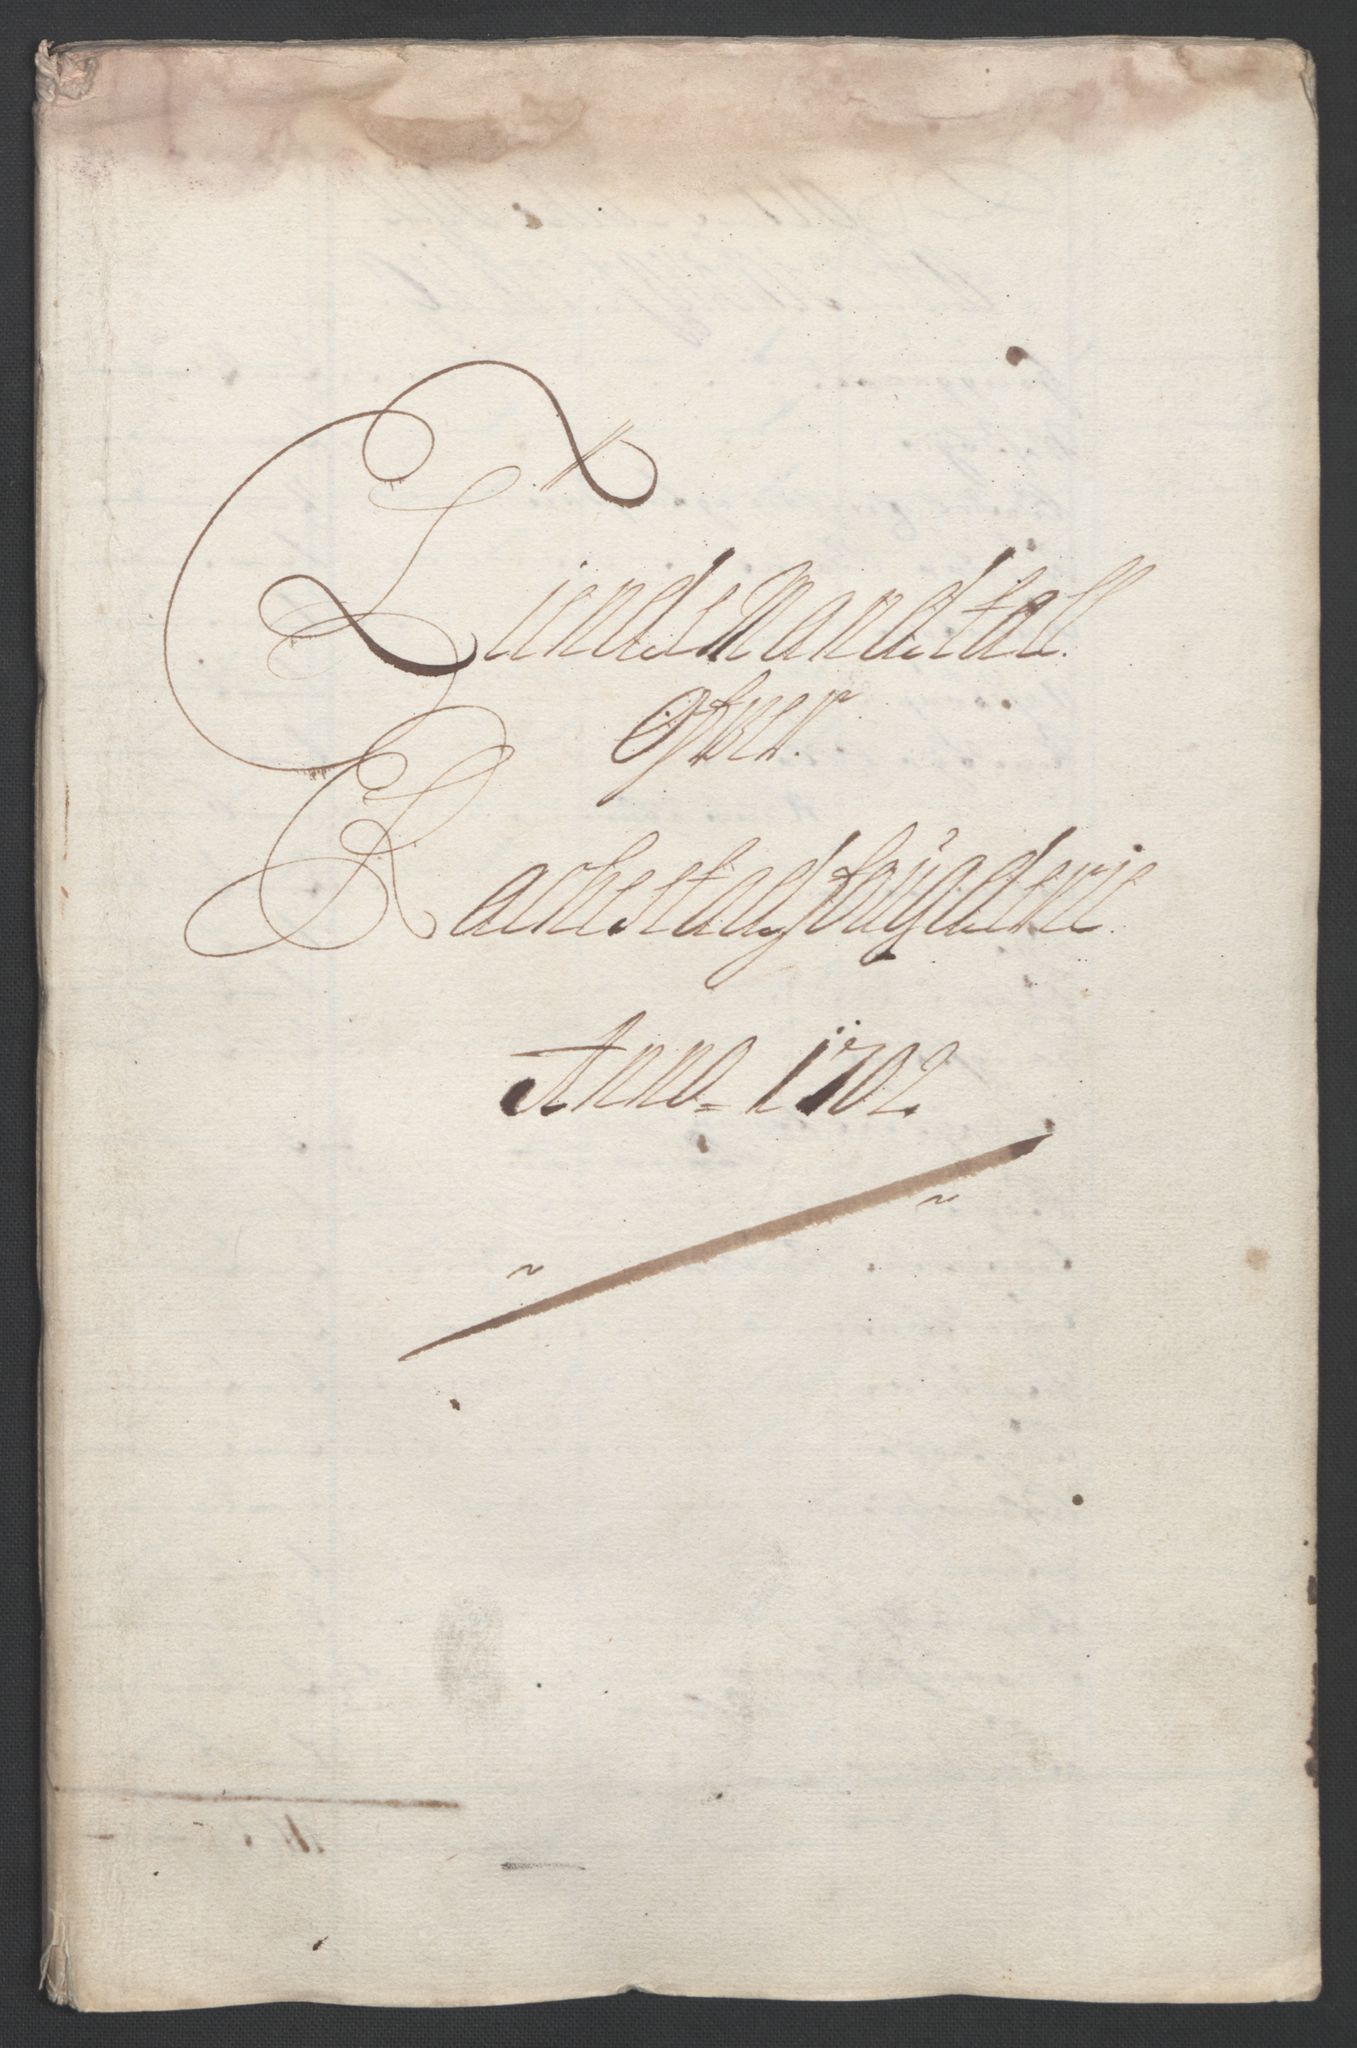 Tiendemandtall
ofver
Rachestadfougderie
Anno 1702